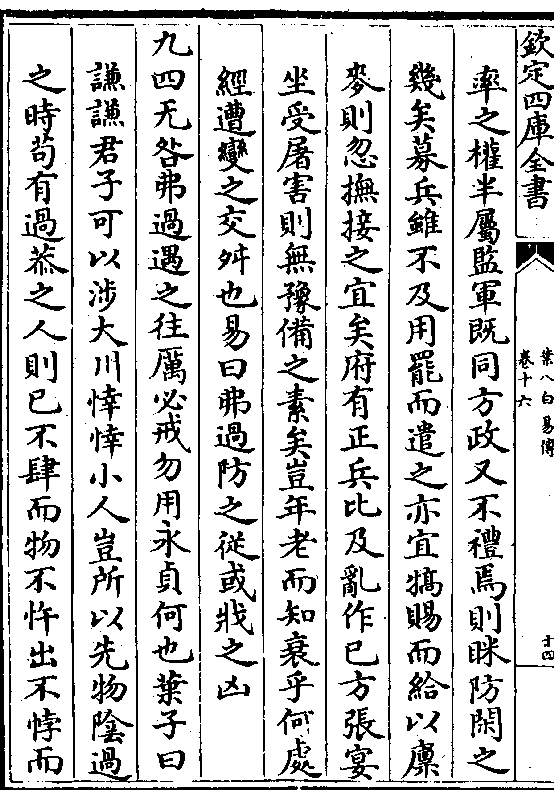 欽定四庫全書
葉八白易傳
卷十六
十四
率之權半屬監軍既同方政又不禮焉則眯防閑之
幾矣募兵雖不及用罷而遣之亦宜犒賜而給以廪
麥則忽撫接之宜矣府有正兵比及亂作已方張宴
坐受屠害則無豫備之素矣豈年老而知衰乎何處
經遭變之交舛也易曰弗過防之從或戕之凶
九四无咎弗過遇之往厲必戒勿用永貞何也葉子曰
謙謙君子可以涉大川悻悻小人豈所以先物陰過
之時茍有過恭之人則已不肆而物不忤出不悖而